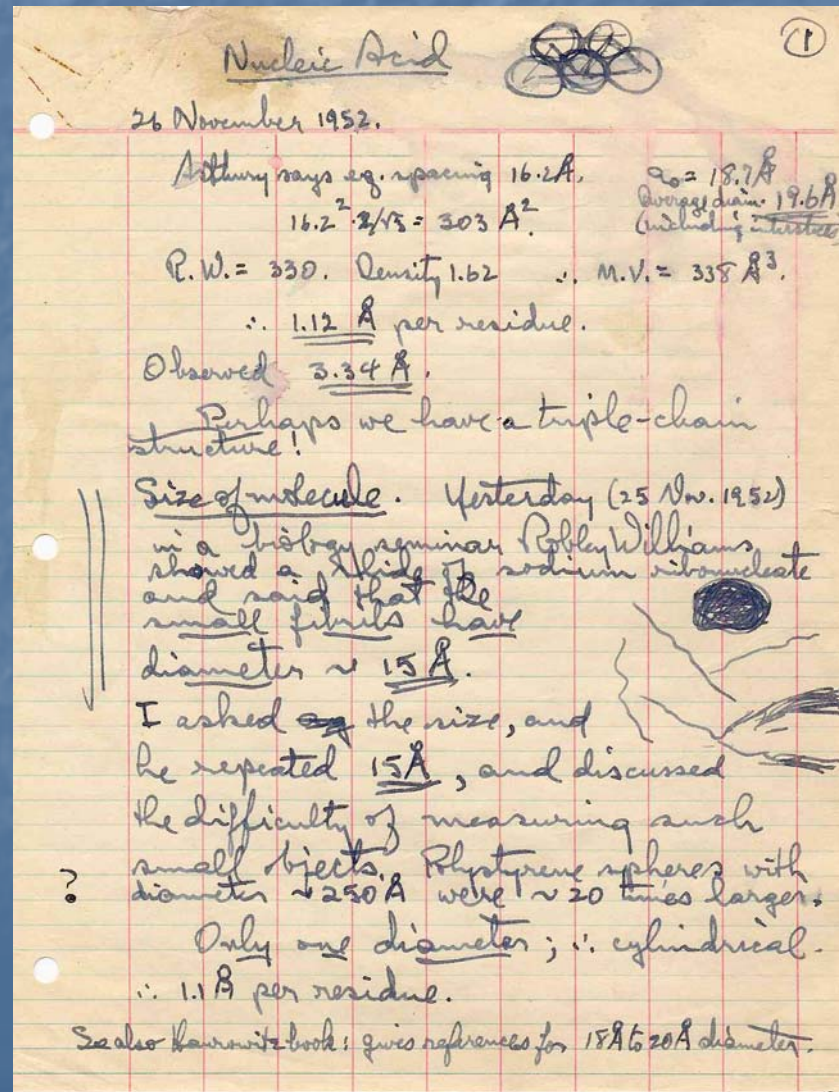 Nucleic Acid
1
26 November 1952.
Astbury says eq. spacing 16.2Å. a₀ = 18.7Å
16.2² · 2/√3 = 303 Å². Average diam. 19.6Å
(including interstices
R.W. = 330. Density 1.62 ∴ M.V. = 338 Å³.
∴ 1.12 Å per residue.
Observed 3.34 Å.
Perhaps we have a triple-chain
structure!
Size of molecule. Yesterday (25 Nov. 1952)
in a biology seminar Robley Williams
showed a slide of sodium ribonucleate
and said that the
small fibrils have
diameter ~ 15 Å.
I asked the size, and
he repeated 15Å, and discussed
the difficulty of measuring such
small objects. Polystyrene spheres with
? diameter ~250Å were ~20 times larger.
Only one diameter; ∴ cylindrical.
∴ 1.1Å per residue.
See also Haurowitz book: gives references for 18Å to 20Å diameter.